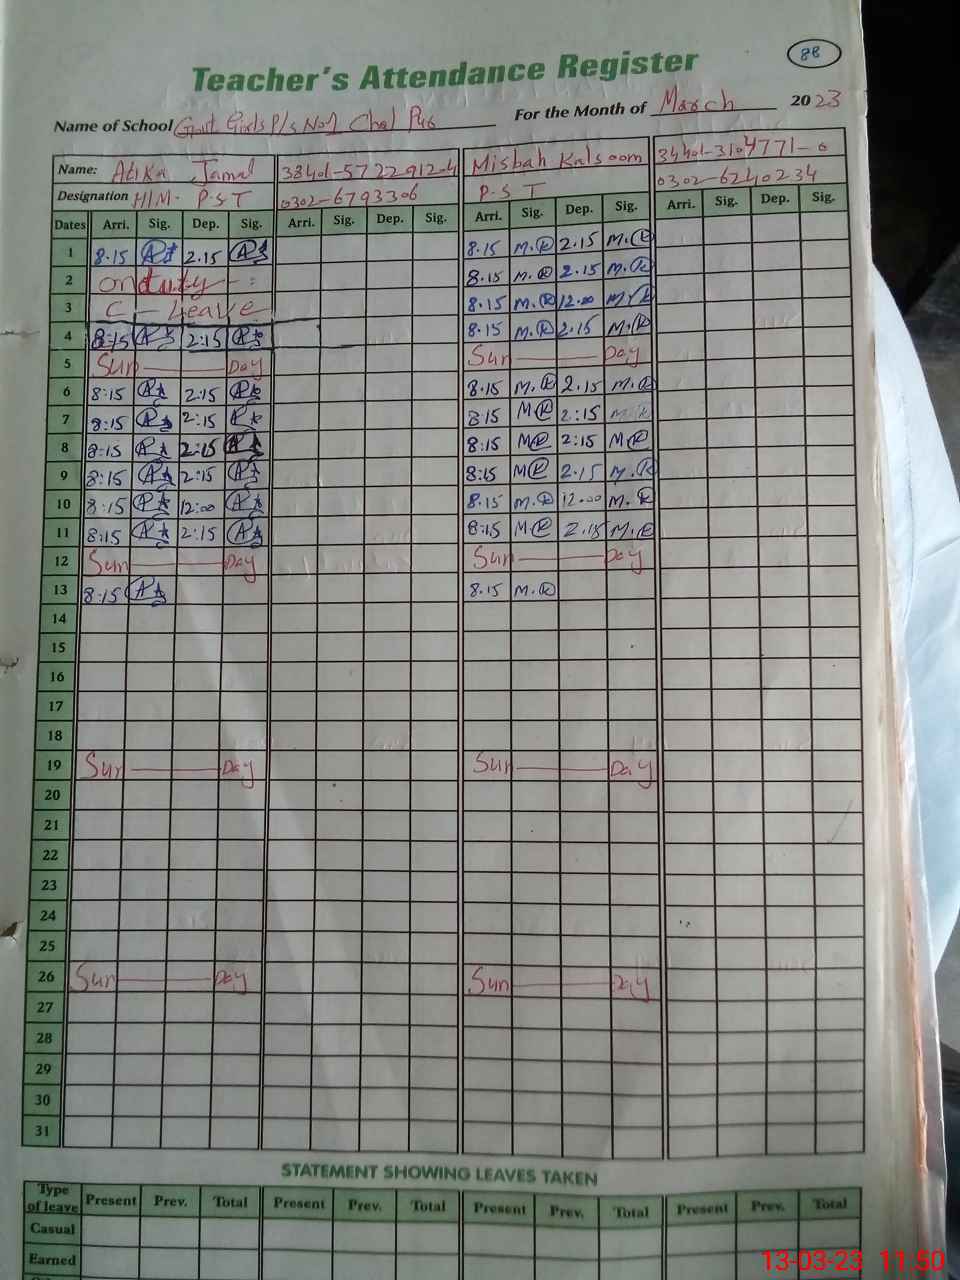 88
Teacher's Attendance Register
Name of School Govt Girls P/s No1 Chal Pur For the Month of March 2023
Name: Atika Jamal 38401-5722912-4 Misbah Kalsoom 34401-3104771-0
Designation H/M. P.S T 0302-6793306 P.S T 0302-6240234
Dates Arri. Sig. Dep. Sig. Arri. Sig. Dep. Sig. Arri. Sig. Dep. Sig. Arri. Sig. Dep. Sig.
1 8.15 2.15 8.15 M.K 2.15 M.K
2 on duty 8.15 M.K 2.15 M.K
3 C - Leave 8.15 M.K 12.00 M.K
4 8:15 2:15 8.15 M.K 2.15 M.K
5 Sun Day Sun Day
6 8:15 2:15 8.15 M.K 2.15 M.K
7 8:15 2:15 8:15 M K 2:15 M K
8 8:15 2:15 8:15 M K 2:15 M K
9 8:15 2:15 8:15 M K 2.15 M.K
10 8:15 12:00 8.15 M.K 12.00 M.K
11 8:15 2:15 8:15 M K 2.15 M.K
12 Sun Day Sun Day
13 8:15 8.15 M.K
14
15
16
17
18
19 Sun Day Sun Day
20
21
22
23
24
25
26 Sun Day Sun Day
27
28
29
30
31
STATEMENT SHOWING LEAVES TAKEN
Type of leave Present Prev. Total Present Prev. Total Present Prev. Total Present Prev. Total
Casual
Earned
13-03-23 11:50